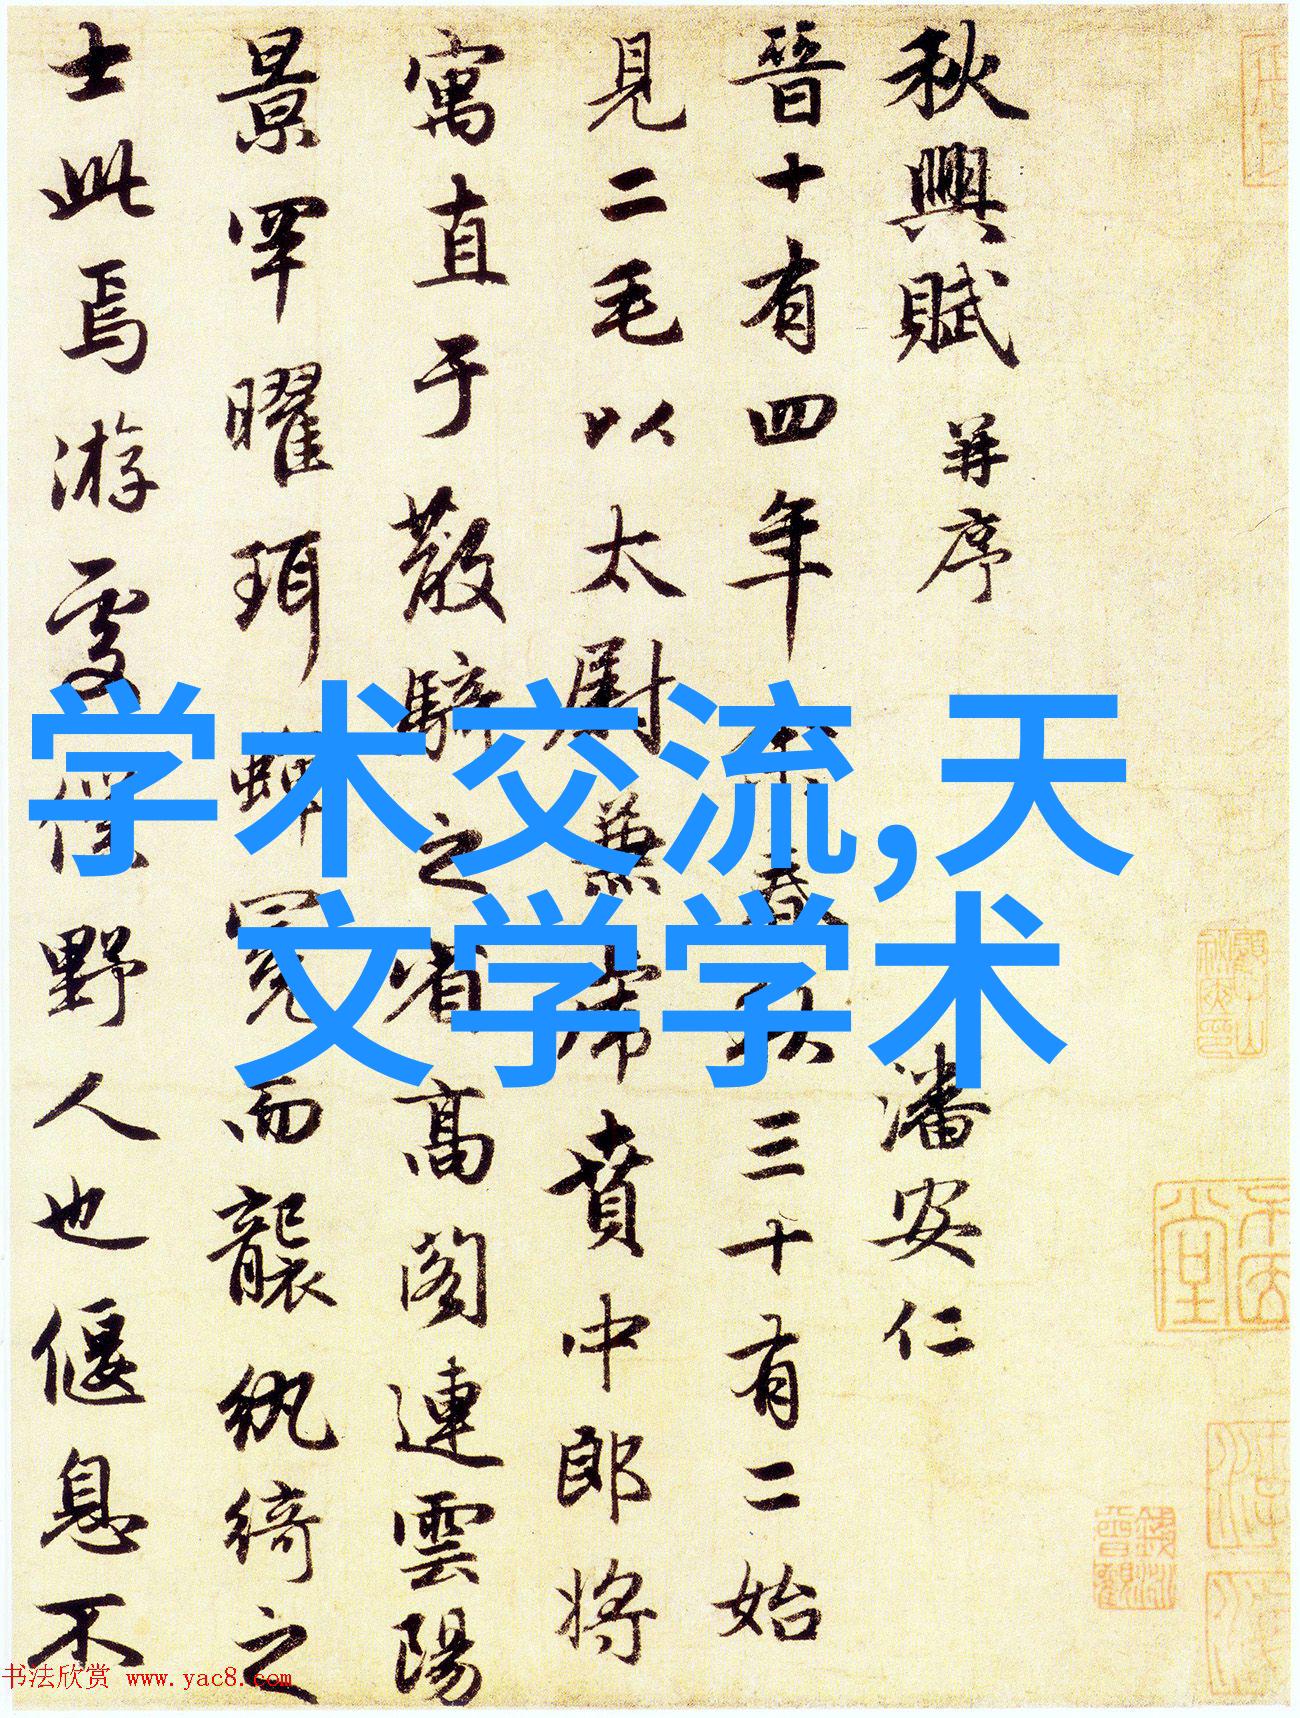 秋興賦 并序 潘安仁
晉十有四年余春秋三十有二始
見二毛以太尉兼虎賁中郎将
寓直于散騎之省髙阁連雲陽
景罕曜珥蟬冕而襲紈綺之
士此焉游處僕野人也偃息不
学术交流,天
文学学术
书法欣赏 www.yac8.com